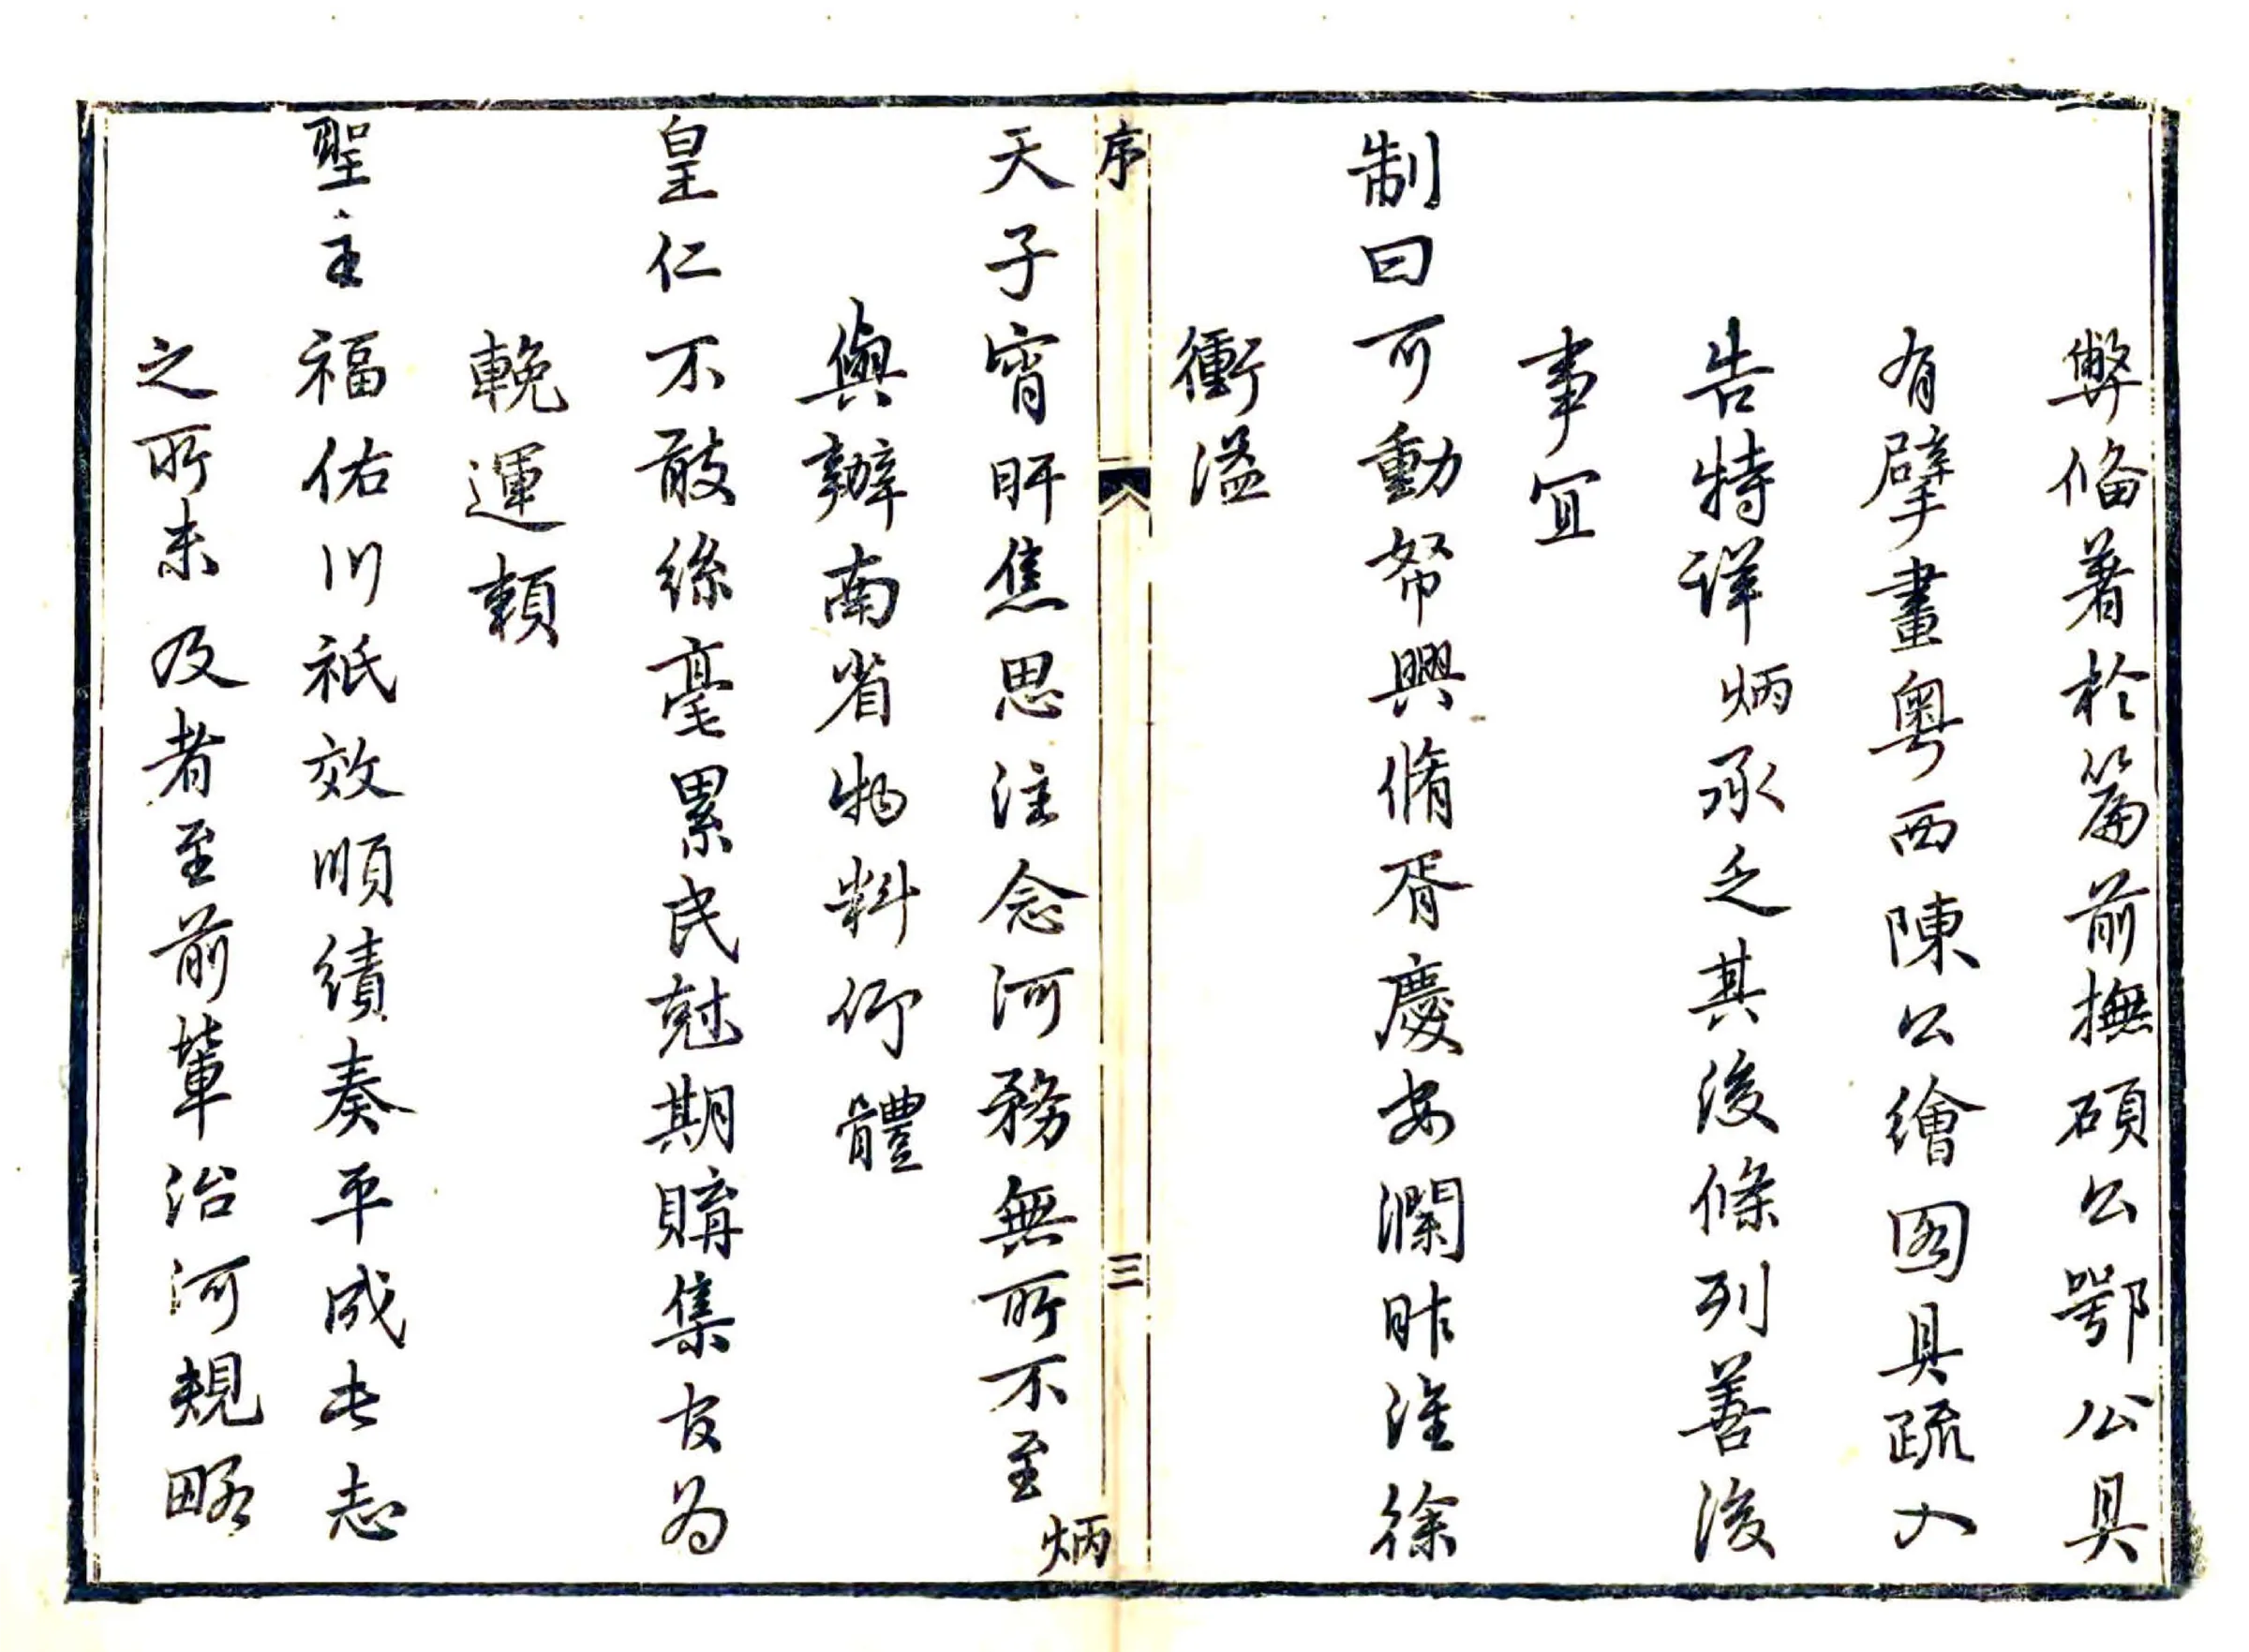 弊俻著於篇前撫碩公鄂公具
有擘畫粤西陳公繪圖具疏入
告特詳炳承乏其後條列善後
事宜
制曰可動帑興脩胥慶安瀾昨淮徐
衝溢
序
三
天子宵旰焦思注念河務無所不至炳
與辦南省物料仰體
皇仁不敢絲毫累民尅期購集官為
輓運賴
聖主福佑川祇效順績奏平成此志
之所未及者至前輩治河規略